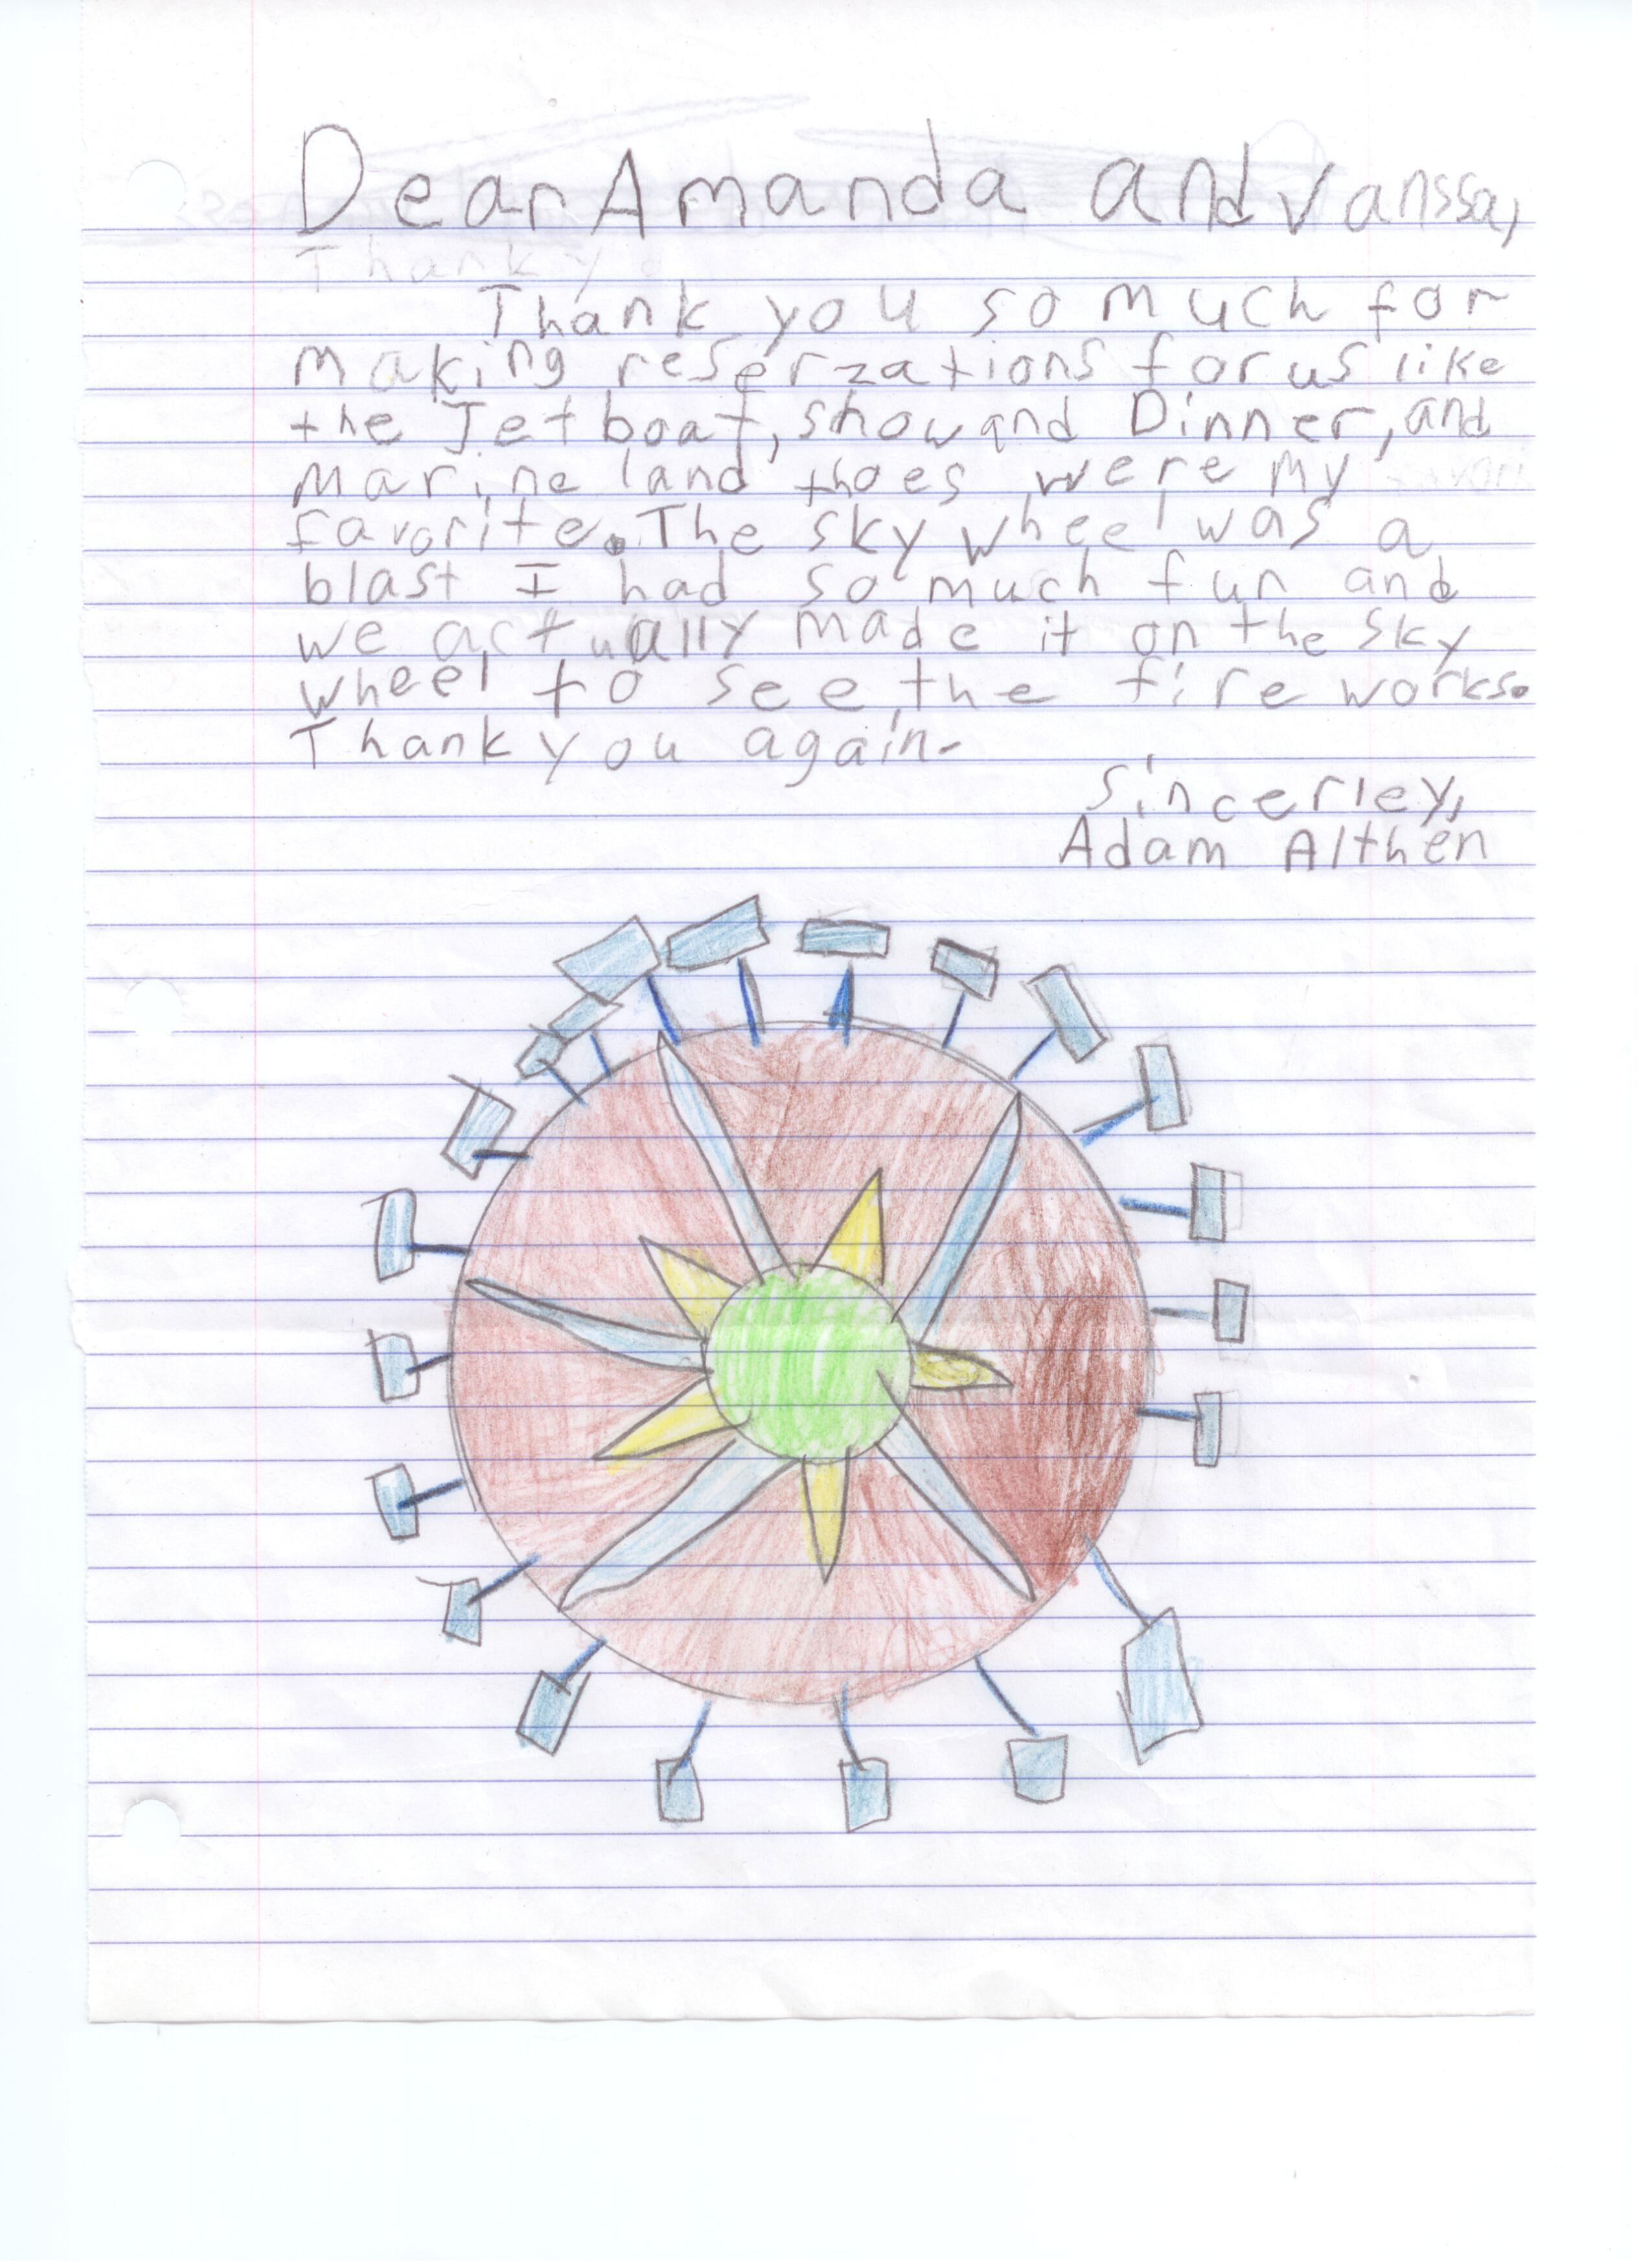 Dear Amanda and Vanssa,
Thank y
Thank you so much for
making reserzations for us like
the Jet boat, show and Dinner, and
marine land thoes were my favori
favorite. The sky wheel was a
blast I had so much fun and
we actually made it on the sky
wheel to see the fire works.
Thank you again.
Sincerley,
Adam Althen